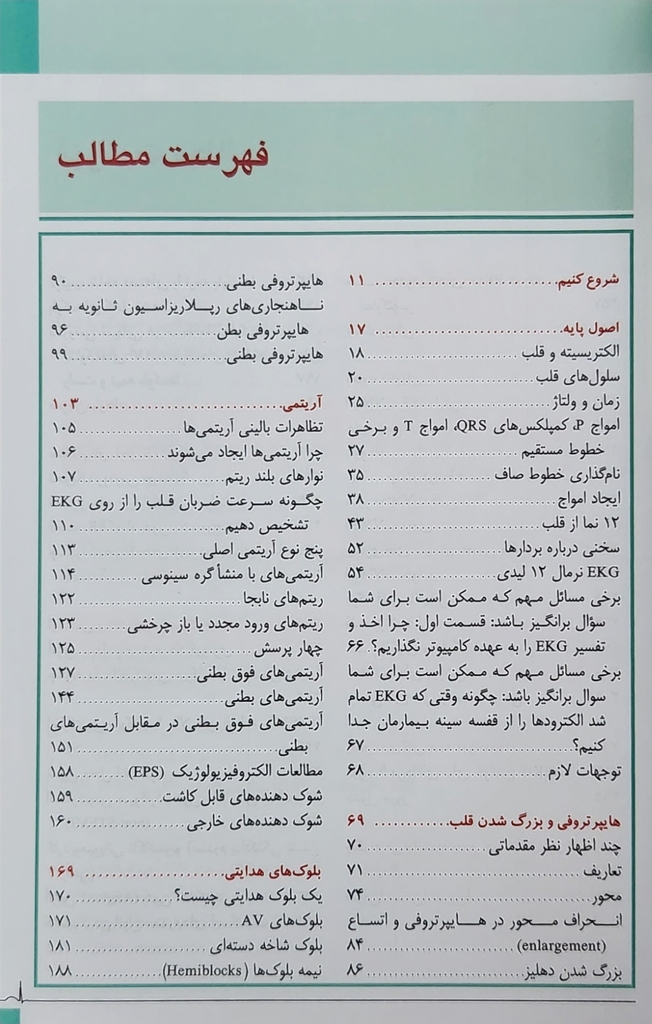 فهرست مطالب
شروع کنیم ........................ ۱۱
اصول پایه ........................ ۱۷
الکتریسیته و قلب ........................ ۱۸
سلول‌های قلب ........................ ۲۰
زمان و ولتاژ ........................ ۲۵
امواج P، کمپلکس‌های QRS، امواج T و برخی
خطوط مستقیم ........................ ۲۷
نام‌گذاری خطوط صاف ........................ ۳۵
ایجاد امواج ........................ ۳۸
۱۲ نما از قلب ........................ ۴۳
سخنی درباره بردارها ........................ ۵۲
EKG نرمال ۱۲ لیدی ........................ ۵۴
برخی مسائل مهم که ممکن است برای شما
سؤال برانگیز باشد: قسمت اول: چرا اخذ و
تفسیر EKG را به عهده کامپیوتر نگذاریم؟. ۶۶
برخی مسائل مهم که ممکن است برای شما
سوال برانگیز باشد: چگونه وقتی که EKG تمام
شد الکترودها را از قفسه سینه بیمارمان جدا
کنیم؟ ........................ ۶۷
توجهات لازم ........................ ۶۸
هایپرتروفی و بزرگ شدن قلب ........................ ۶۹
چند اظهار نظر مقدماتی ........................ ۷۰
تعاریف ........................ ۷۱
محور ........................ ۷۴
انحراف محور در هایپرتروفی و اتساع
(enlargement) ........................ ۸۴
بزرگ شدن دهلیز ........................ ۸۶
هایپرتروفی بطنی ........................ ۹۰
ناهنجاری‌های رپلاریزاسیون ثانویه به
هایپرتروفی بطن ........................ ۹۶
هایپرتروفی بطنی ........................ ۹۹
آریتمی ........................ ۱۰۳
تظاهرات بالینی آریتمی‌ها ........................ ۱۰۵
چرا آریتمی‌ها ایجاد می‌شوند ........................ ۱۰۶
نوارهای بلند ریتم ........................ ۱۰۷
چگونه سرعت ضربان قلب را از روی EKG
تشخیص دهیم ........................ ۱۱۰
پنج نوع آریتمی اصلی ........................ ۱۱۳
آریتمی‌های با منشأ گره سینوسی ........................ ۱۱۴
ریتم‌های نابجا ........................ ۱۲۲
ریتم‌های ورود مجدد یا باز چرخشی ........................ ۱۲۳
چهار پرسش ........................ ۱۲۵
آریتمی‌های فوق بطنی ........................ ۱۲۷
آریتمی‌های بطنی ........................ ۱۴۴
آریتمی‌های فوق بطنی در مقابل آریتمی‌های
بطنی ........................ ۱۵۱
مطالعات الکتروفیزیولوژیک (EPS) ........................ ۱۵۸
شوک دهنده‌های قابل کاشت ........................ ۱۵۹
شوک دهنده‌های خارجی ........................ ۱۶۰
بلوک‌های هدایتی ........................ ۱۶۹
یک بلوک هدایتی چیست؟ ........................ ۱۷۰
بلوک‌های AV ........................ ۱۷۱
بلوک شاخه دسته‌ای ........................ ۱۸۱
نیمه بلوک‌ها (Hemiblocks) ........................ ۱۸۸